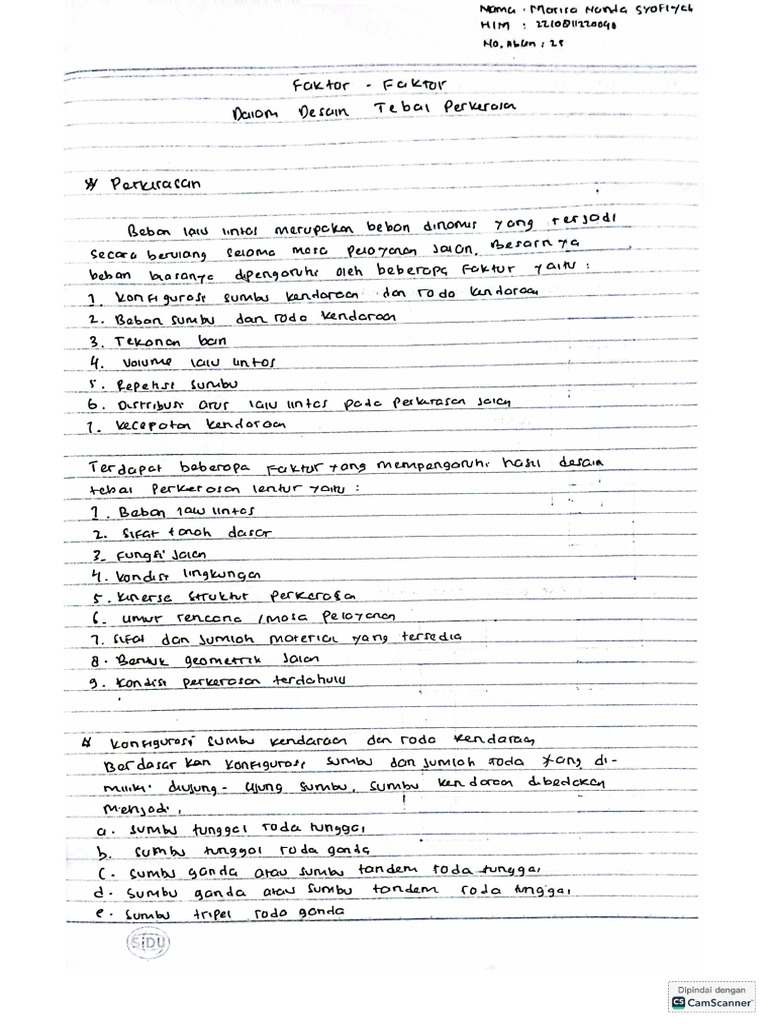 Nama : Marisa Nanda Syofiyah
NIM : 2210811220040
No. Absen : 25
Faktor - Faktor
Dalam Desain Tebal Perkerasan
* Perkerasan
Beban lalu lintas merupakan beban dinamis yang terjadi
secara berulang selama masa pelayanan jalan. Besarnya
beban biasanya dipengaruhi oleh beberapa faktur yaitu :
1. Konfigurasi sumbu kendaraan dan roda kendaraan
2. Beban sumbu dan roda kendaraan
3. Tekanan ban
4. Volume lalu lintas
5. Repetisi sumbu
6. Distribusi arus lalu lintas pada perkerasan jalan
7. Kecepatan kendaraan
Terdapat beberapa faktur yang mempengaruhi hasil desain
tebal perkerasan lentur yaitu :
1. Beban lalu lintas
2. Sifat tanah dasar
3. Fungsi jalan
4. Kondisi lingkungan
5. Kinersa struktur perkerasa
6. Umur rencana / masa pelayanan
7. Sifat dan jumlah material yang tersedia
8. Bentuk geometrik jalan
9. Kondisi perkerasan terdahulu
* Konfigurasi sumbu kendaraan dan roda kendaraan
Berdasarkan konfigurasi sumbu dan jumlah roda yang di-
miliki diujung-ujung sumbu, sumbu kendaraan dibedakan
menjadi,
a. sumbu tunggal roda tunggal
b. sumbu tunggal roda ganda
c. sumbu ganda atau sumbu tandem roda tunggal
d. sumbu ganda atau sumbu tandem roda tunggal
e. sumbu tripel roda ganda
SIDU
Dipindai dengan
CS CamScanner